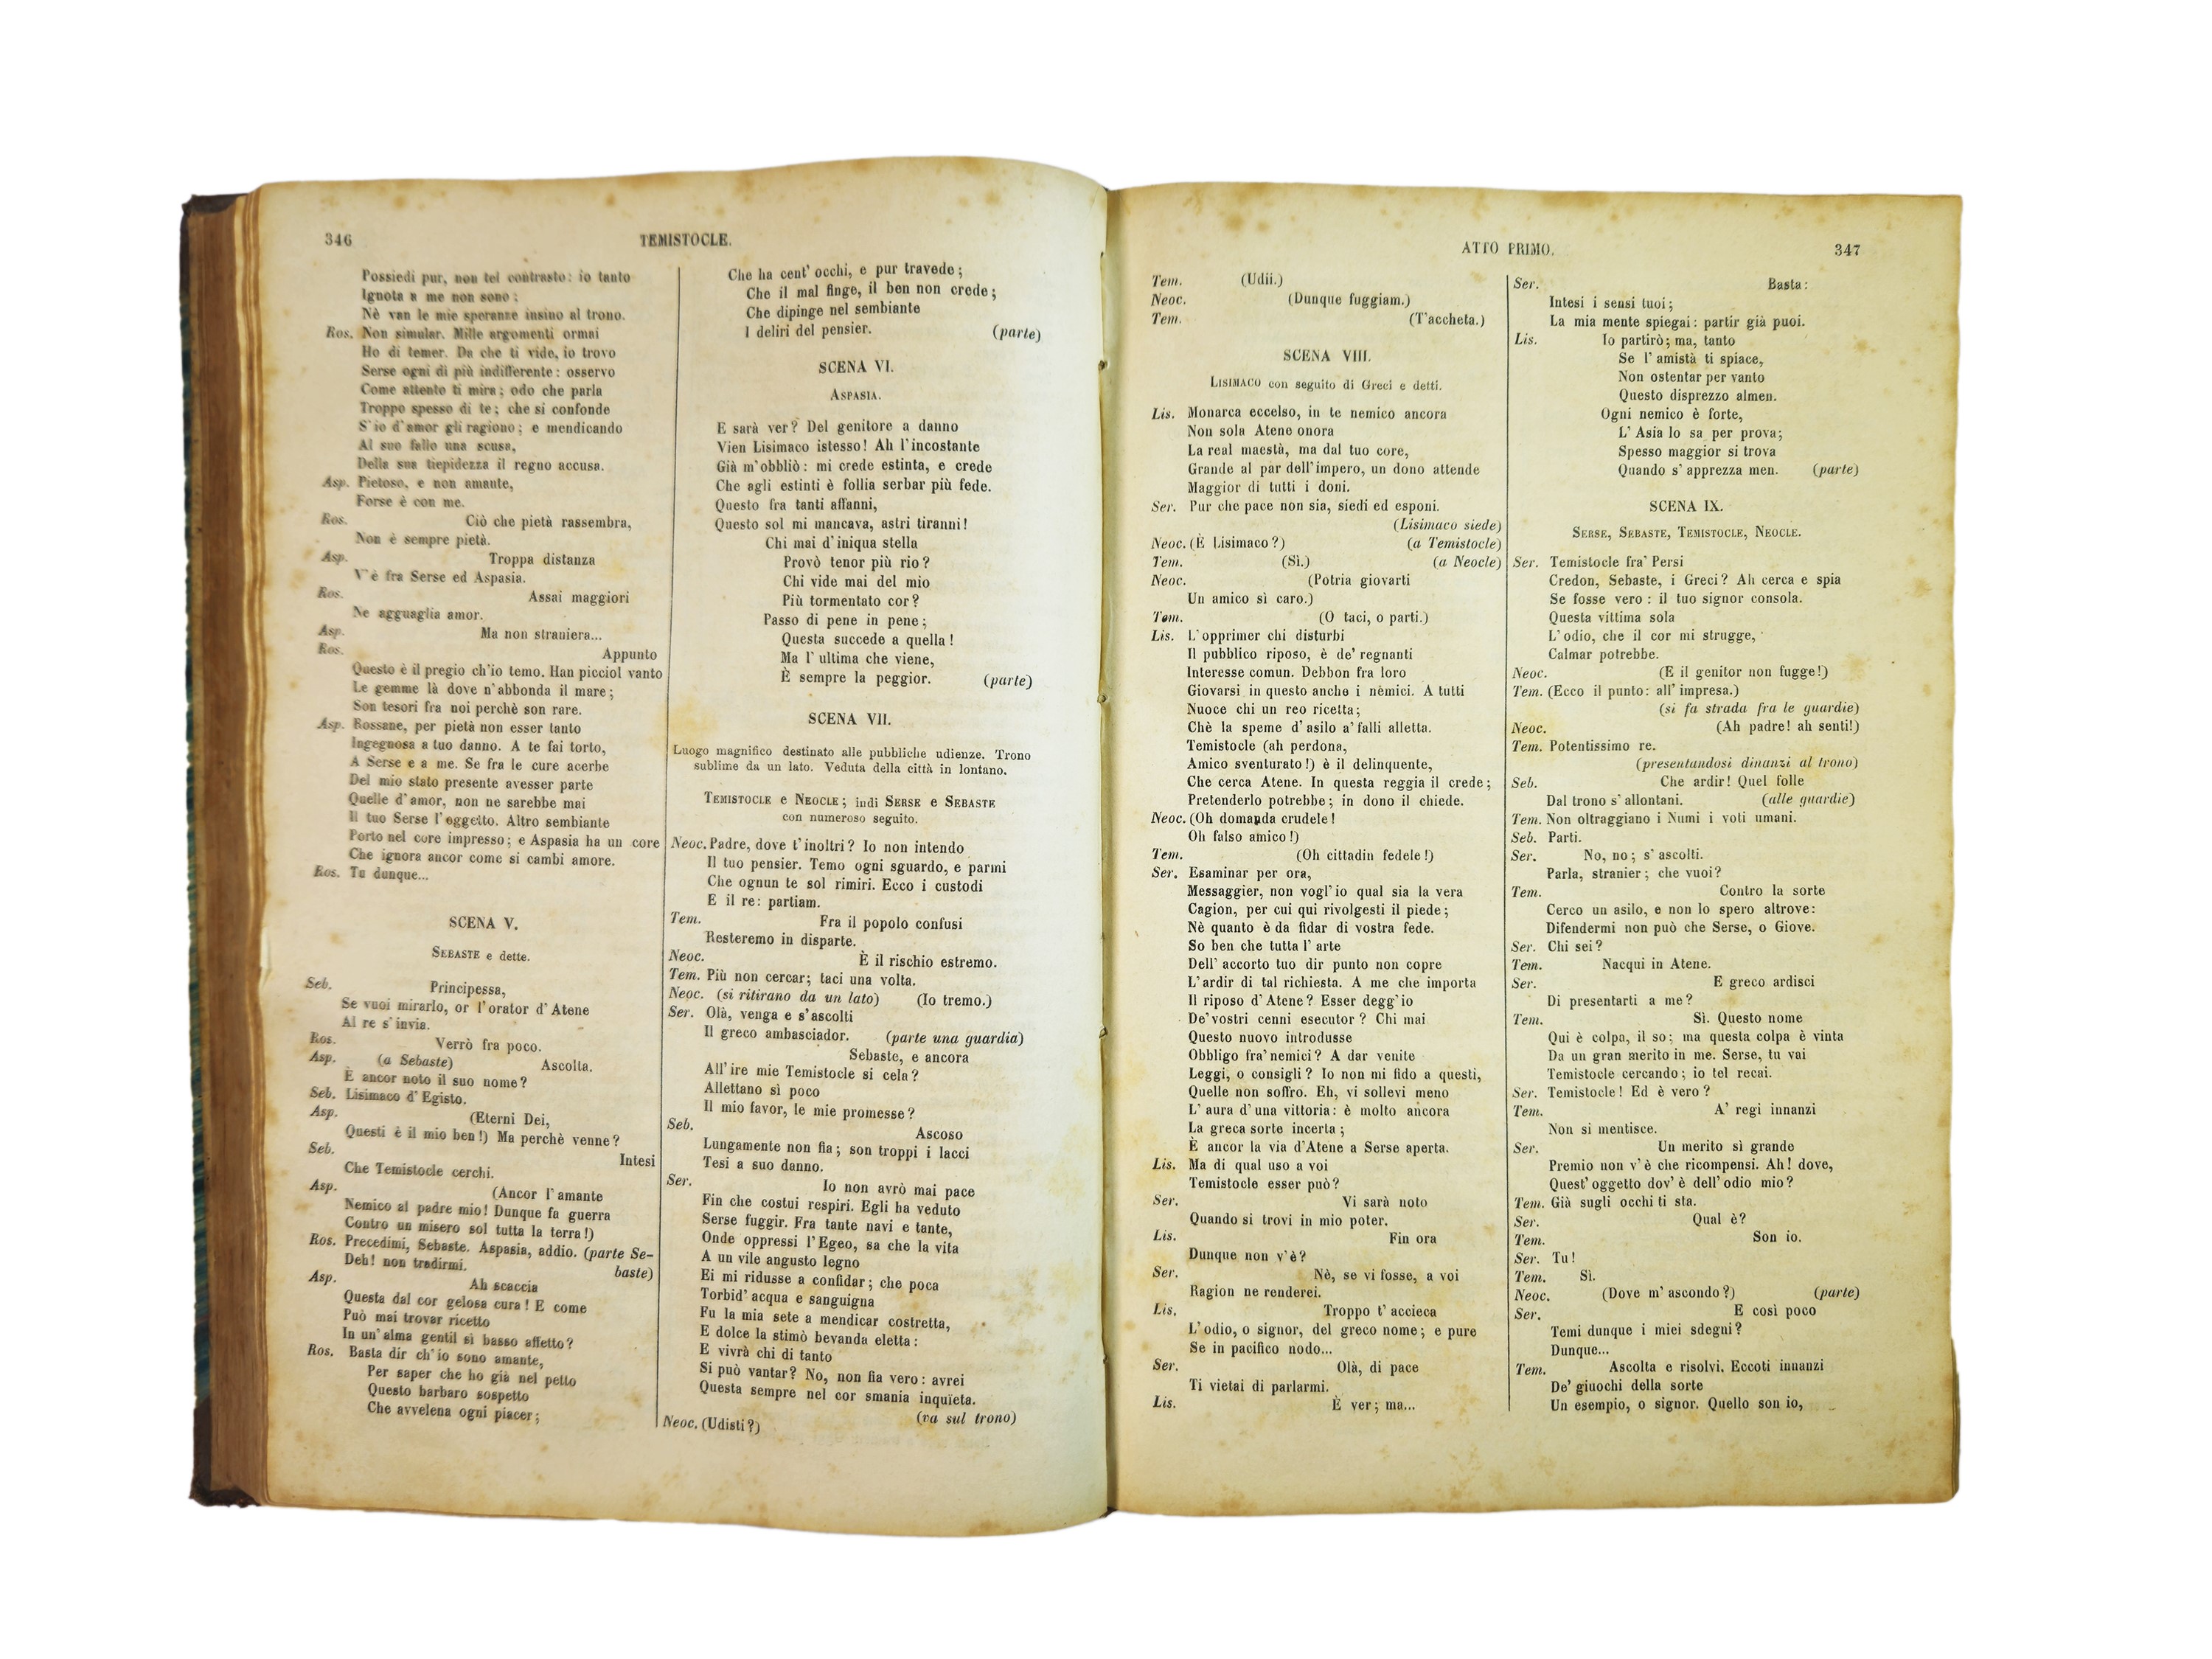 346
TEMISTOCLE.
Possiedi pur, non tel contrasto: io tanto
Ignota a me non sono:
Nè van le mie speranze insino al trono.
Ros. Non simular. Mille argomenti ormai
Ho di temer. Da che ti vide, io trovo
Serse ogni dì più indifferente: osservo
Come attento ti mira; odo che parla
Troppo spesso di te; che si confonde
S'io d'amor gli ragiono; e mendicando
Al suo fallo una scusa,
Della sua tiepidezza il regno accusa.
Asp. Pietoso, e non amante,
Forse è con me.
Ros. Ciò che pietà rassembra,
Non è sempre pietà.
Asp. Troppa distanza
V'è fra Serse ed Aspasia.
Ros. Assai maggiori
Ne agguaglia amor.
Asp. Ma non straniera...
Ros. Appunto
Questo è il pregio ch'io temo. Han picciol vanto
Le gemme là dove n'abbonda il mare;
Son tesori fra noi perchè son rare.
Asp. Rossane, per pietà non esser tanto
Ingegnosa a tuo danno. A te fai torto,
A Serse e a me. Se fra le cure acerbe
Del mio stato presente avesser parte
Quelle d'amor, non ne sarebbe mai
Il tuo Serse l'oggetto. Altro sembiante
Porto nel core impresso; e Aspasia ha un core
Che ignora ancor come si cambi amore.
Ros. Tu dunque...
SCENA V.
SEBASTE e dette.
Seb. Principessa,
Se vuoi mirarlo, or l'orator d'Atene
Al re s'invia.
Ros. Verrò fra poco.
Asp. (a Sebaste) Ascolta.
È ancor noto il suo nome?
Seb. Lisimaco d'Egisto.
Asp. (Eterni Dei,
Questi è il mio ben!) Ma perchè venne?
Seb. Intesi
Che Temistocle cerchi.
Asp. (Ancor l'amante
Nemico al padre mio! Dunque fa guerra
Contro un misero sol tutta la terra!)
Ros. Precedimi, Sebaste. Aspasia, addio. (parte Se-
Deh! non tradirmi. baste)
Asp. Ah scaccia
Questa dal cor gelosa cura! E come
Può mai trovar ricetto
In un'alma gentil sì basso affetto?
Ros. Basta dir ch'io sono amante,
Per saper che ho già nel petto
Questo barbaro sospetto
Che avvelena ogni piacer;
Che ha cent'occhi, e pur travede;
Che il mal finge, il ben non crede;
Che dipinge nel sembiante
I deliri del pensier. (parte)
SCENA VI.
ASPASIA.
E sarà ver? Del genitore a danno
Vien Lisimaco istesso! Ah l'incostante
Già m'obbliò: mi crede estinta, e crede
Che agli estinti è follia serbar più fede.
Questo fra tanti affanni,
Questo sol mi mancava, astri tiranni!
Chi mai d'iniqua stella
Provò tenor più rio?
Chi vide mai del mio
Più tormentato cor?
Passo di pene in pene;
Questa succede a quella!
Ma l'ultima che viene,
È sempre la peggior. (parte)
SCENA VII.
Luogo magnifico destinato alle pubbliche udienze. Trono
sublime da un lato. Veduta della città in lontano.
TEMISTOCLE e NEOCLE; indi SERSE e SEBASTE
con numeroso seguito.
Neoc. Padre, dove t'inoltri? Io non intendo
Il tuo pensier. Temo ogni sguardo, e parmi
Che ognun te sol rimiri. Ecco i custodi
E il re: partiam.
Tem. Fra il popolo confusi
Resteremo in disparte.
Neoc. È il rischio estremo.
Tem. Più non cercar; taci una volta.
Neoc. (si ritirano da un lato) (Io tremo.)
Ser. Olà, venga e s'ascolti
Il greco ambasciador. (parte una guardia)
Sebaste, e ancora
All'ire mie Temistocle si cela?
Allettano sì poco
Il mio favor, le mie promesse?
Seb. Ascoso
Lungamente non fia; son troppi i lacci
Tesi a suo danno.
Ser. Io non avrò mai pace
Fin che costui respiri. Egli ha veduto
Serse fuggir. Fra tante navi e tante,
Onde oppressi l'Egeo, sa che la vita
A un vile angusto legno
Ei mi ridusse a confidar; che poca
Torbid'acqua e sanguigna
Fu la mia sete a mendicar costretta,
E dolce la stimò bevanda eletta:
E vivrà chi di tanto
Si può vantar? No, non fia vero: avrei
Questa sempre nel cor smania inquieta.
(va sul trono)
Neoc. (Udisti?)
ATTO PRIMO.
347
Tem. (Udii.)
Neoc. (Dunque fuggiam.)
Tem. (T'accheta.)
SCENA VIII.
LISIMACO con seguito di Greci e detti.
Lis. Monarca eccelso, in te nemico ancora
Non sola Atene onora
La real maestà, ma dal tuo core,
Grande al par dell'impero, un dono attende
Maggior di tutti i doni.
Ser. Pur che pace non sia, siedi ed esponi.
(Lisimaco siede)
Neoc. (È Lisimaco?) (a Temistocle)
Tem. (Sì.) (a Neocle)
Neoc. (Potria giovarti
Un amico sì caro.)
Tem. (O taci, o parti.)
Lis. L'opprimer chi disturbi
Il pubblico riposo, è de' regnanti
Interesse comun. Debbon fra loro
Giovarsi in questo anche i nemici. A tutti
Nuoce chi un reo ricetta;
Chè la speme d'asilo a' falli alletta.
Temistocle (ah perdona,
Amico sventurato!) è il delinquente,
Che cerca Atene. In questa reggia il crede;
Pretenderlo potrebbe; in dono il chiede.
Neoc. (Oh domanda crudele!
Oh falso amico!)
Tem. (Oh cittadin fedele!)
Ser. Esaminar per ora,
Messaggier, non vogl'io qual sia la vera
Cagion, per cui qui rivolgesti il piede;
Nè quanto è da fidar di vostra fede.
So ben che tutta l'arte
Dell'accorto tuo dir punto non copre
L'ardir di tal richiesta. A me che importa
Il riposo d'Atene? Esser degg'io
De' vostri cenni esecutor? Chi mai
Questo nuovo introdusse
Obbligo fra' nemici? A dar venite
Leggi, o consigli? Io non mi fido a questi,
Quelle non soffro. Eh, vi sollevi meno
L'aura d'una vittoria: è molto ancora
La greca sorte incerta;
È ancor la via d'Atene a Serse aperta.
Lis. Ma di qual uso a voi
Temistocle esser può?
Ser. Vi sarà noto
Quando si trovi in mio poter.
Lis. Fin ora
Dunque non v'è?
Ser. Nè, se vi fosse, a voi
Ragion ne renderei.
Lis. Troppo t'accieca
L'odio, o signor, del greco nome; e pure
Se in pacifico nodo...
Ser. Olà, di pace
Ti vietai di parlarmi.
Lis. È ver; ma...
Ser. Basta:
Intesi i sensi tuoi;
La mia mente spiegai: partir già puoi.
Lis. Io partirò; ma, tanto
Se l'amistà ti spiace,
Non ostentar per vanto
Questo disprezzo almen.
Ogni nemico è forte,
L'Asia lo sa per prova;
Spesso maggior si trova
Quando s'apprezza men. (parte)
SCENA IX.
SERSE, SEBASTE, TEMISTOCLE, NEOCLE.
Ser. Temistocle fra' Persi
Credon, Sebaste, i Greci? Ah cerca e spia
Se fosse vero: il tuo signor consola.
Questa vittima sola
L'odio, che il cor mi strugge,
Calmar potrebbe.
Neoc. (E il genitor non fugge!)
Tem. (Ecco il punto: all'impresa.)
(si fa strada fra le guardie)
Neoc. (Ah padre! ah senti!)
Tem. Potentissimo re.
(presentandosi dinanzi al trono)
Seb. Che ardir! Quel folle
Dal trono s'allontani. (alle guardie)
Tem. Non oltraggiano i Numi i voti umani.
Seb. Parti.
Ser. No, no; s'ascolti.
Parla, stranier; che vuoi?
Tem. Contro la sorte
Cerco un asilo, e non lo spero altrove:
Difendermi non può che Serse, o Giove.
Ser. Chi sei?
Tem. Nacqui in Atene.
Ser. E greco ardisci
Di presentarti a me?
Tem. Sì. Questo nome
Qui è colpa, il so; ma questa colpa è vinta
Da un gran merito in me. Serse, tu vai
Temistocle cercando; io tel recai.
Ser. Temistocle! Ed è vero?
Tem. A' regi innanzi
Non si mentisce.
Ser. Un merito sì grande
Premio non v'è che ricompensi. Ah! dove,
Quest'oggetto dov'è dell'odio mio?
Tem. Già sugli occhi ti sta.
Ser. Qual è?
Tem. Son io.
Ser. Tu!
Tem. Sì.
Neoc. (Dove m'ascondo?) (parte)
Ser. E così poco
Temi dunque i miei sdegni?
Dunque...
Tem. Ascolta e risolvi. Eccoti innanzi
De' giuochi della sorte
Un esempio, o signor. Quello son io,